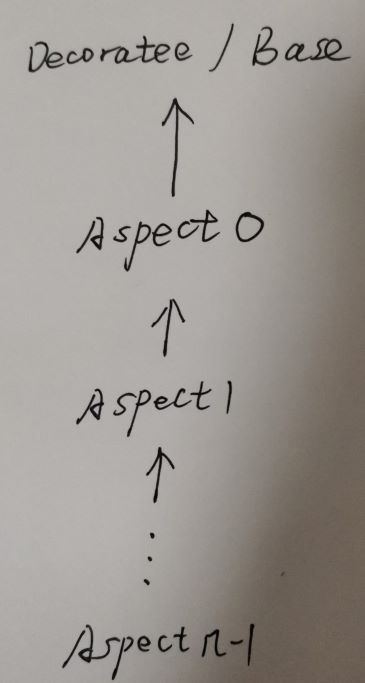 Decoratee / Base
Aspect 0
Aspect 1
⋮
Aspect n-1